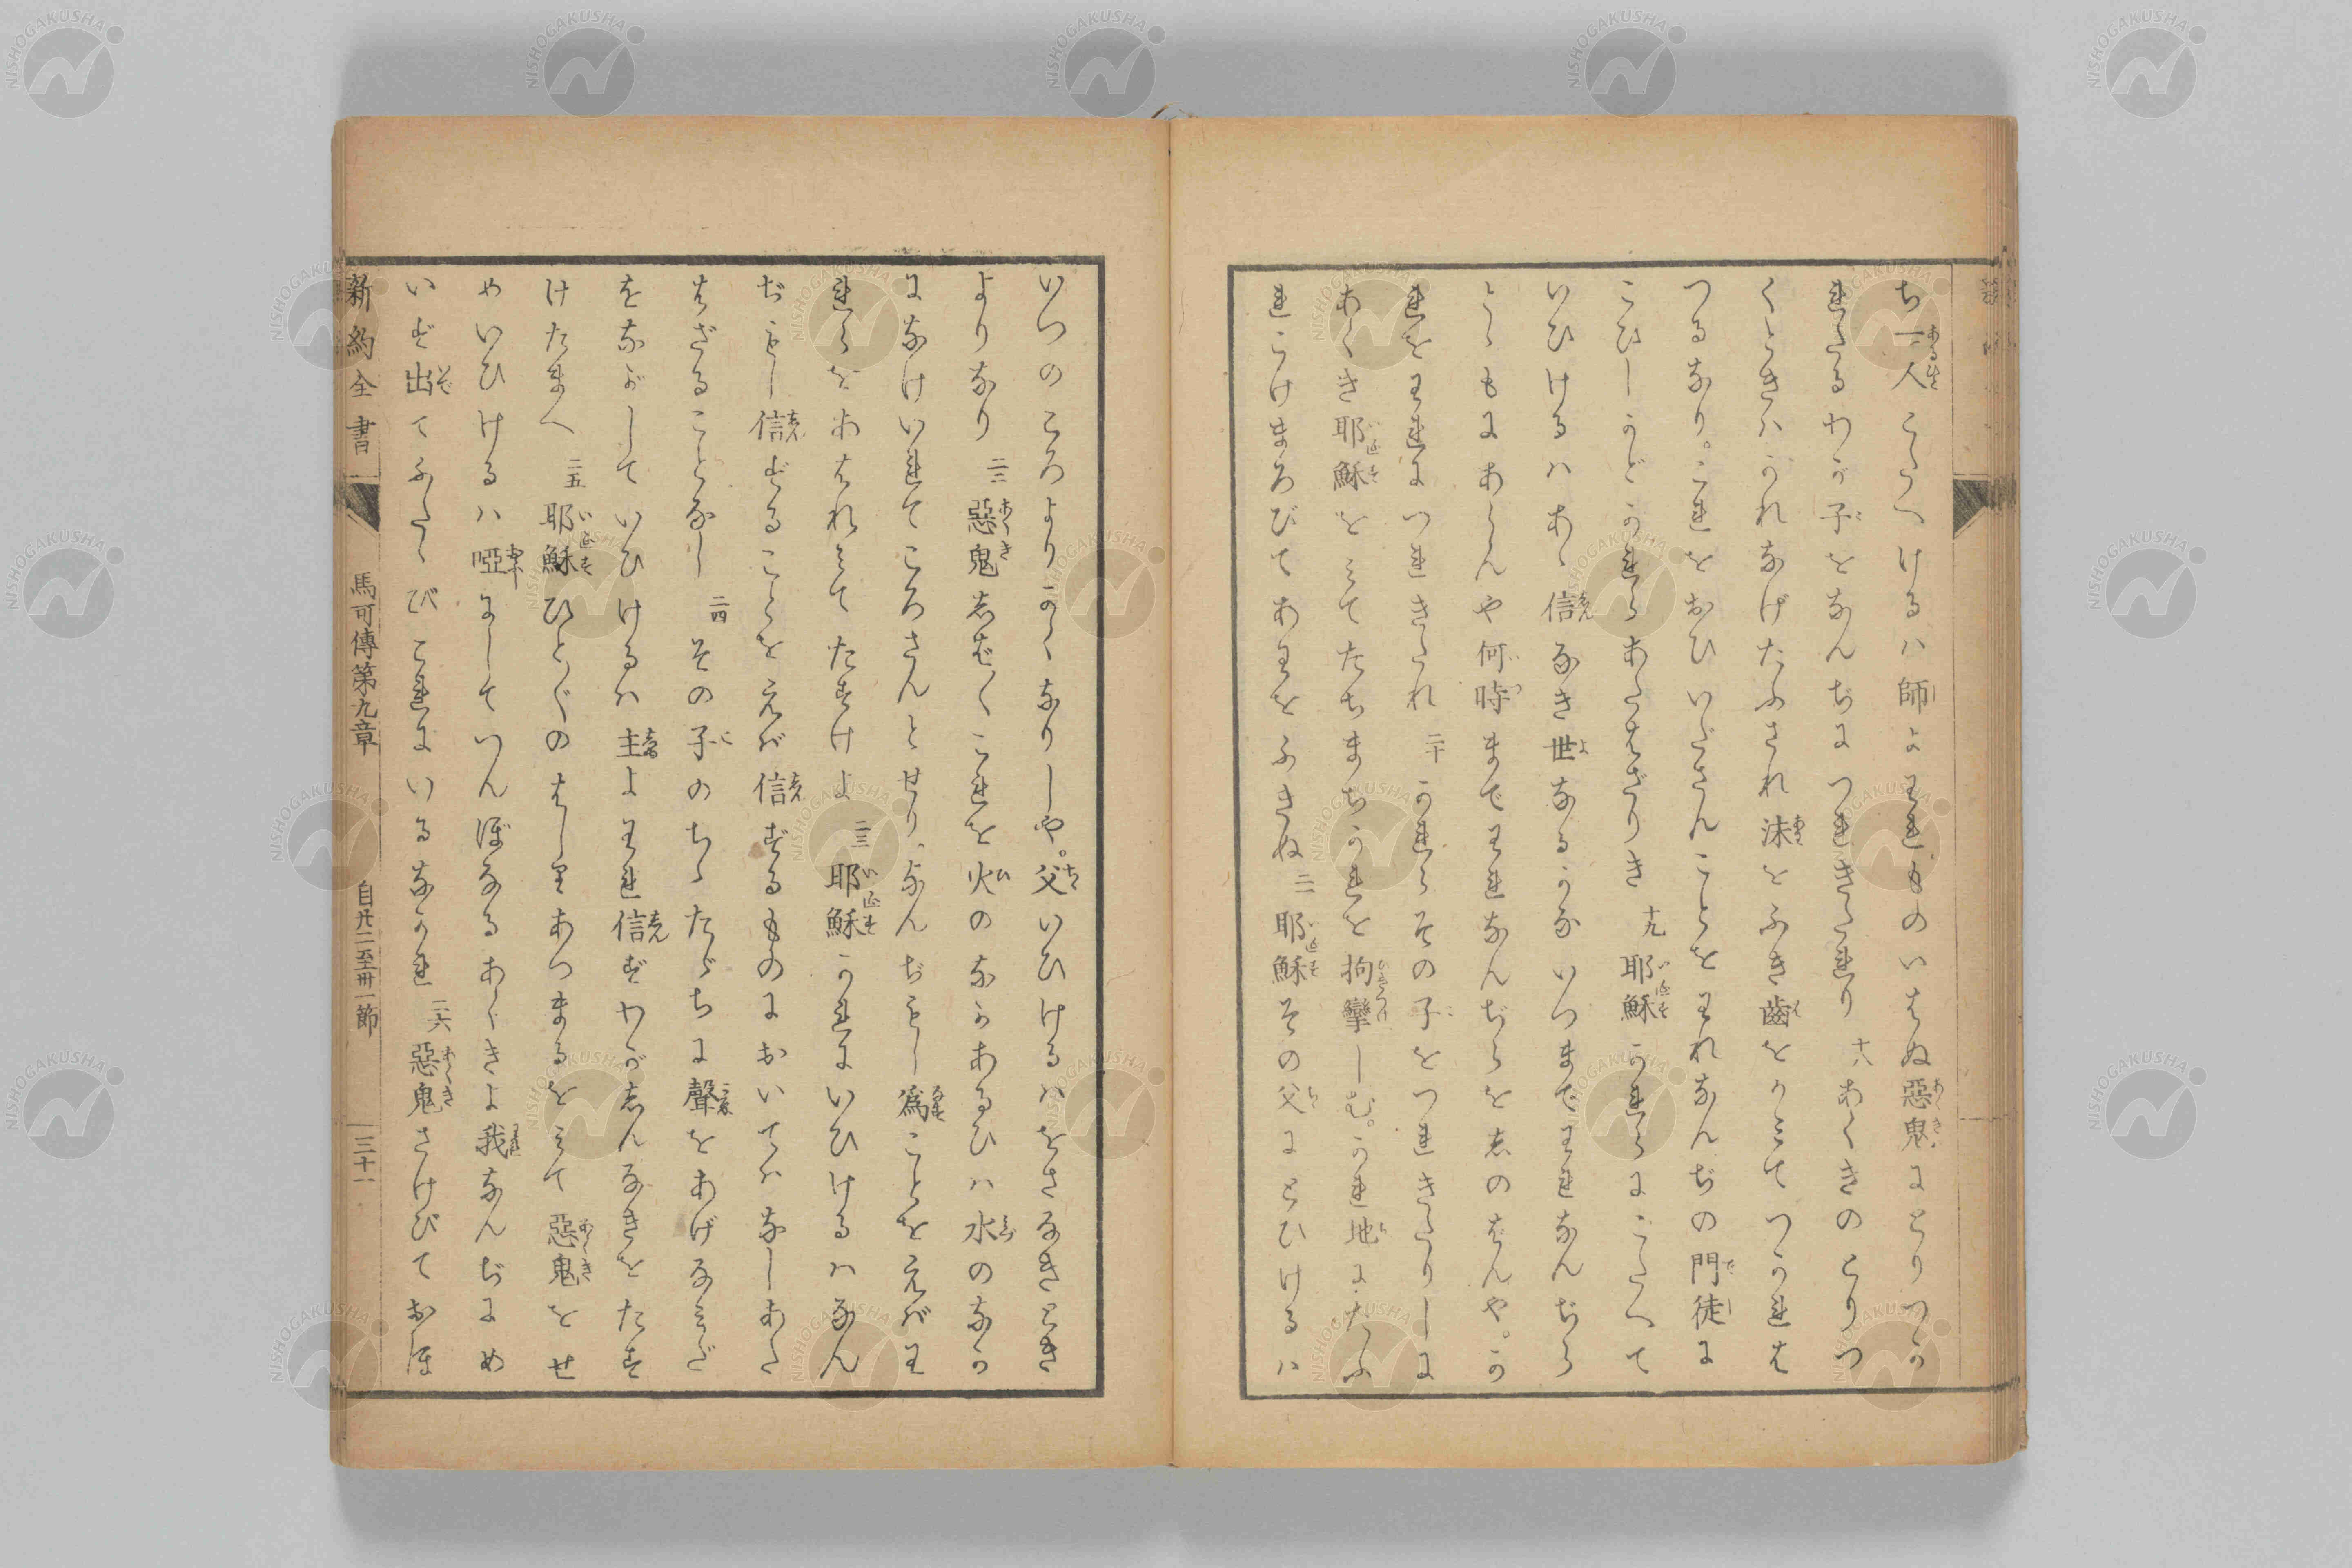 ち一人こたへけるハ師よ王れものいはぬ惡鬼にとりつか
れたるわが子をなんぢにつれきたれり 十八 あくきのとりつ
くときハかれなげたふされ沫をふき齒をかみてつかれは
つるなり。これをおひいださんことをわれなんぢの門徒に
こひしかどかれらあたはざりき 十九 耶穌かれらにこたへて
いひけるハあゝ信なき世なるかないつまでわれなんぢら
とゝもにあらんや何時までわれなんぢらを志のばんや。か
れをわれにつれきたれ 二十 かれらその子をつれきたりしに
あくき耶穌をみてたちまちかれを拘攣しむ。かれ地にたふ
れこけまろびてあわをふきぬ 二一 耶穌その父にとひけるハ
いつのころよりかくなりしや。父いひけるハをさなきとき
よりなり 二二 惡鬼志ば〱これを火のなかあるひハ水のなか
になけいれてころさんとせり。なんぢもし爲ことをえバわ
れらをあはれみてたすけよ 二三 耶穌かれにいひけるハなん
ぢもし信ずることをえバ信ずるものにおいてハなしあた
はざることなし 二四 その子のちゝたゞちに聲をあげなみだ
をながしていひけるハ主よわれ信ずわが志んなきをたす
けたまへ 二五 耶穌ひと〲のはしりあつまるをみて惡鬼をせ
めいひけるハ啞にしてつんぼなるあくきよ我なんぢにめ
いず出てふたゝびこれにいるなかれ 二六 惡鬼さけびておほ
新約全書 馬可傳第九章 自廿二至卅一節 三十一